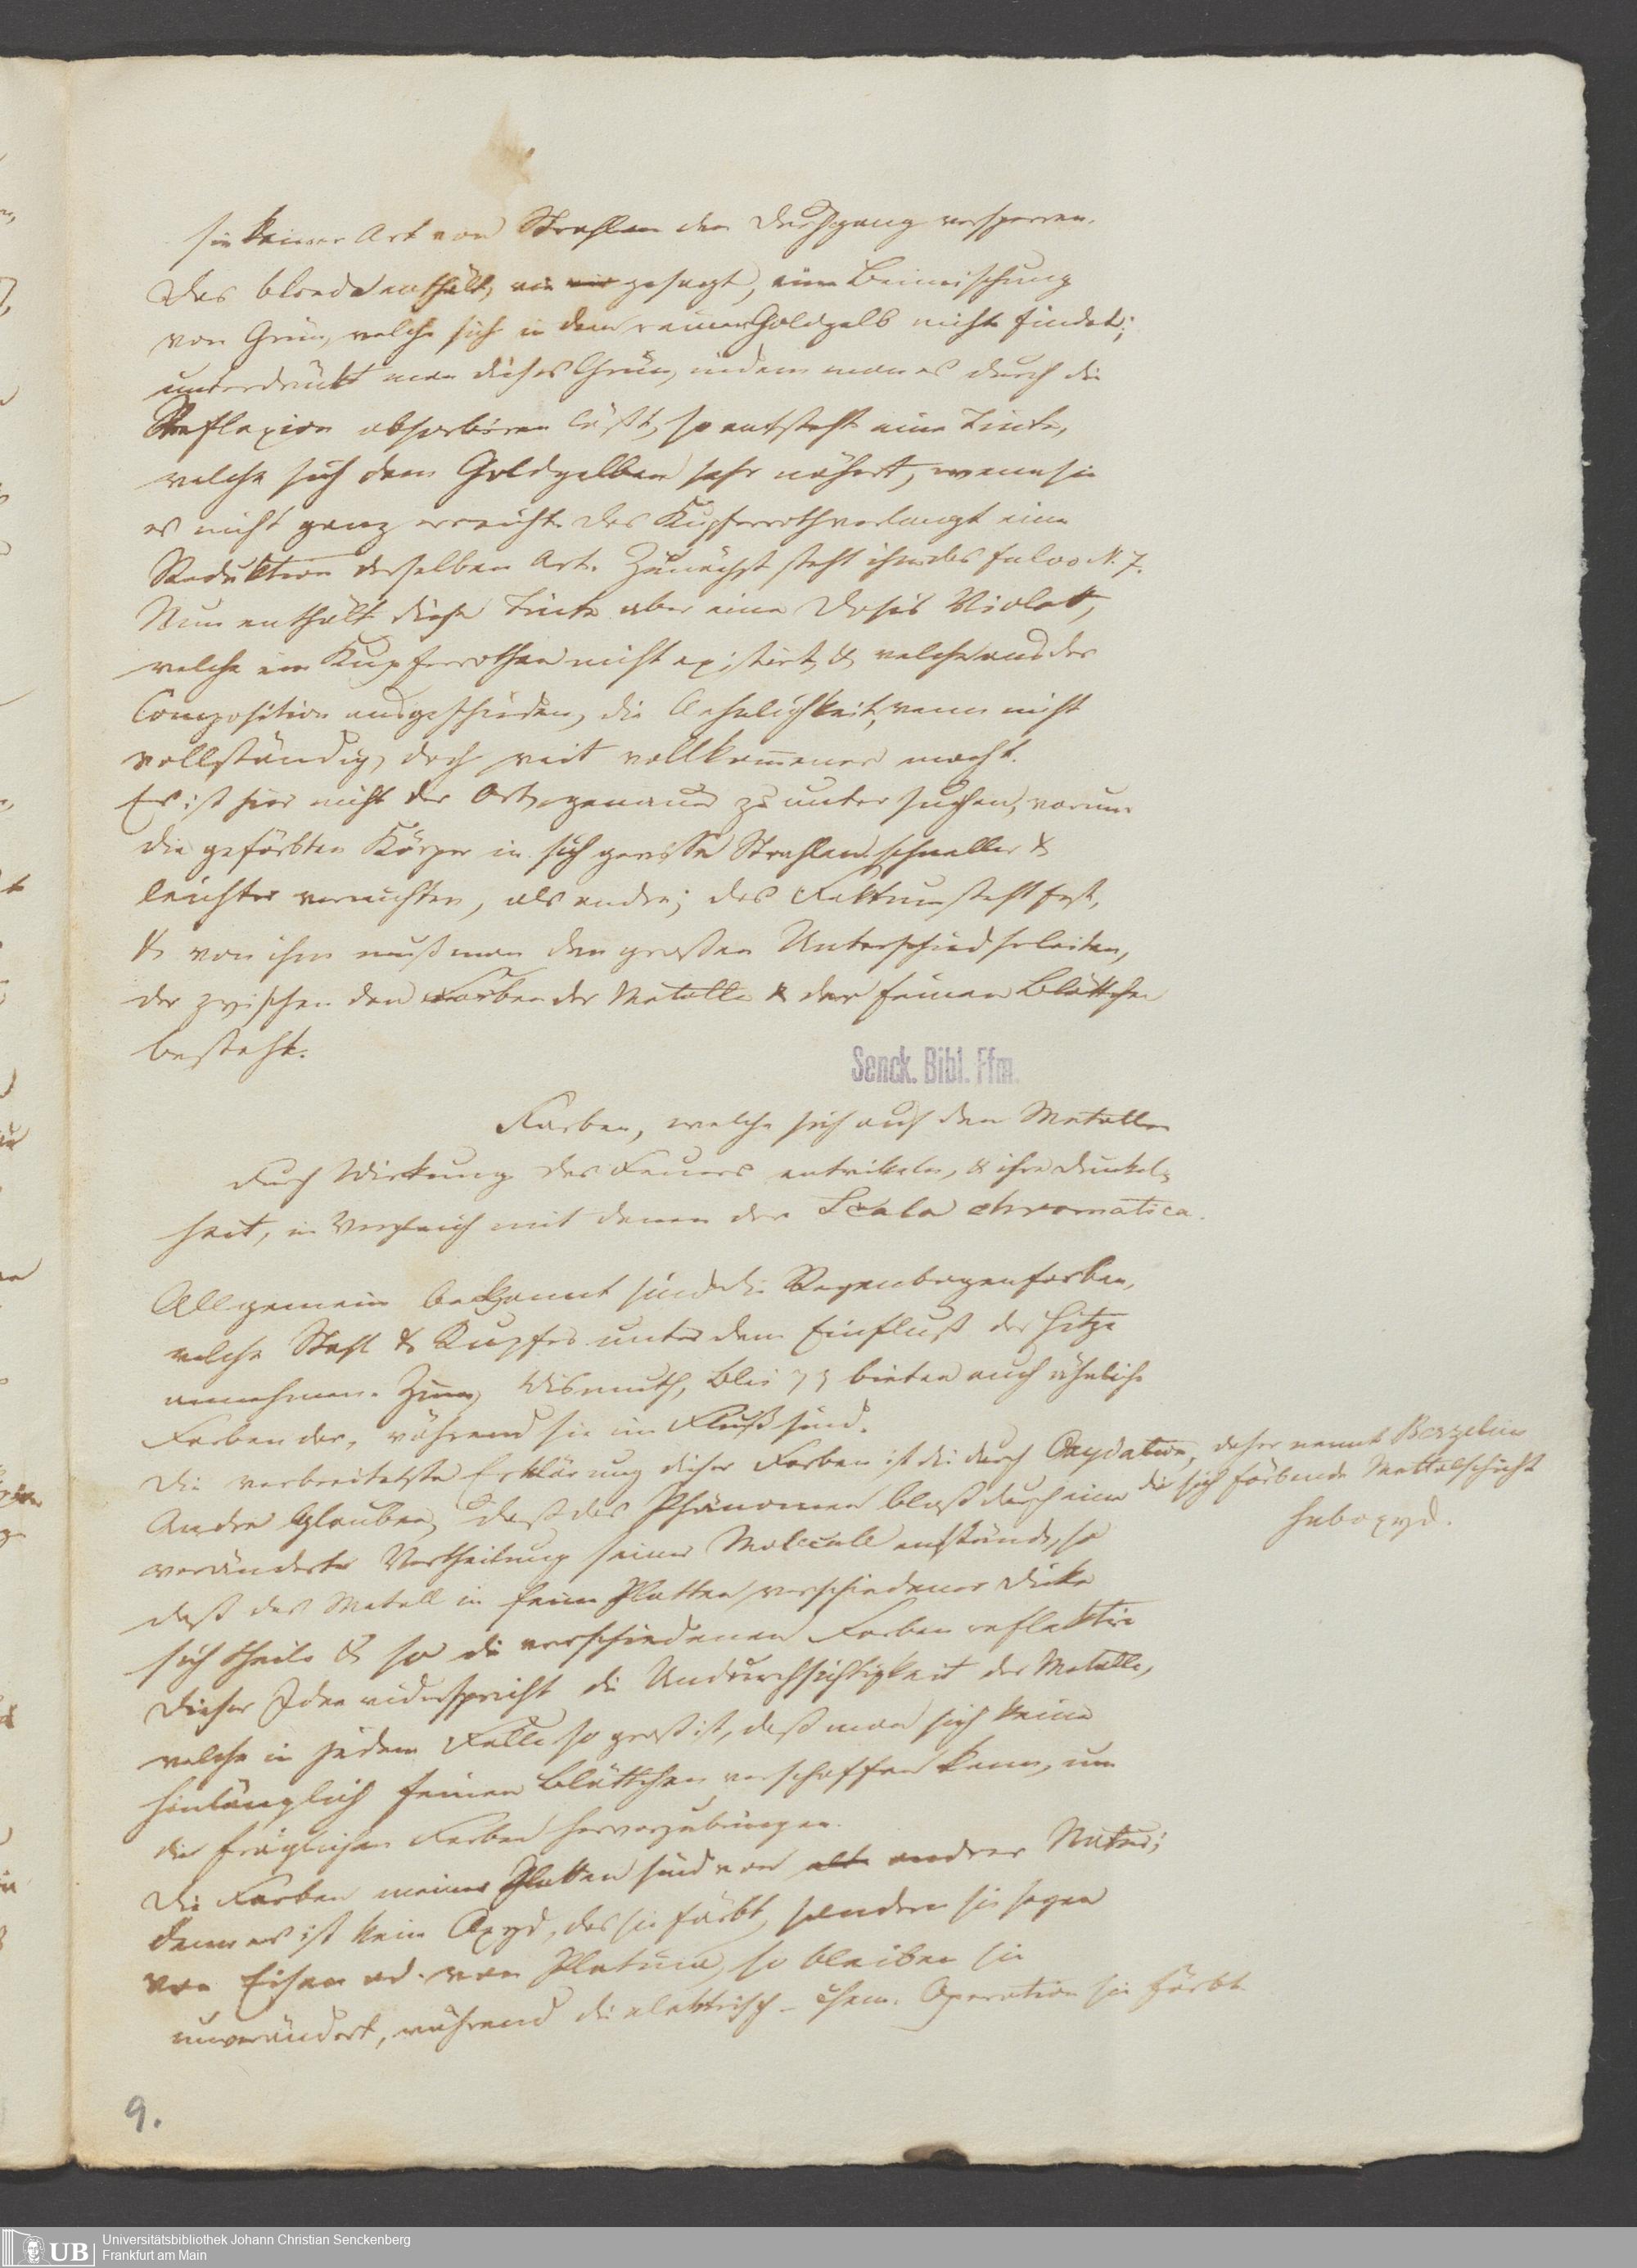 sie keiner Art von Strahlen den Durchgang versperren.
Das blonde enthält, wie wir gesagt, eine Beimischung
von Grün, welche sich in dem reinen Goldgelb nicht findet;
unterdrückt man dieses Grün, indem man es durch die
Reflexion absorbiren läßt, so entsteht eine Tinte,
welche sich dem Goldgelben sehr nähert, wenn sie
es nicht ganz erreicht. Das Kupferroth verlangt eine
Reduktion derselben Art. Zunächst steht ihm das fulvo N. 7.
Nun enthält diese Tinte aber eine Dosis Violett,
welche im Kupferrothen nicht existirt, & welche aus der
Composition ausgeschieden, die Aehnlichkeit, wenn nicht
vollständig, doch weit vollkom̅ener macht.
Es ist hier nicht der Ort, genauer zu untersuchen, warum
die gefärbten Körper in sich gewisse Strahlen schneller &
leichter vernichten, als andre; das Faktum steht fest,
& von ihm muß man den großen Unterschied herleiten,
der zwischen den Farben der Metalle & der feinen Blättchen
besteht.
Senck. Bibl. Ffm.
Farben, welche sich auf den Metallen
durch Wirkung des Feuers entwikeln, & ihre Dunkel-
heit, in Vergleich mit denen der Scala chromatica.
Allgemein bekannt sind die Regenbogenfarben,
welche Stahl & Kupfer unter dem Einfluß der Hitze
annehmen. Zinn, Wismuth, Blei pp bieten auch ähnliche
Farben dar, während sie im Fluß sind.
Die verbreitetste Erklärung dieser Farben ist die durch Oxydation, daher nennt Berzelius
die sich färbende Mettalschicht
Suboxyd.
Andre glauben, daß das Phänomen bloß durch eine
veränderte Vertheilung seiner Molecule entstände, so
daß das Metall in feine Platten verschiedener Dicke
sich theile & so die verschiedenen Farben reflektire
Dieser Idee widerspricht die Undurchsichtigkeit der Metalle,
welche in jedem Falle so groß ist, daß man sich keine
hinlänglich feinen Blättchen verschaffen kann, um
die fraglichen Farben hervorzubringen.
Die Farben meiner Platten sind von andrer Natur;
denn es ist kein Oxyd, das sie färbt, sie seyen
von Eisen od. von Platina, so bleiben sie
unverändert, während die elektrisch-chem. Operation sie färbt
9.
UB
Universitätsbibliothek Johann Christian Senckenberg
Frankfurt am Main